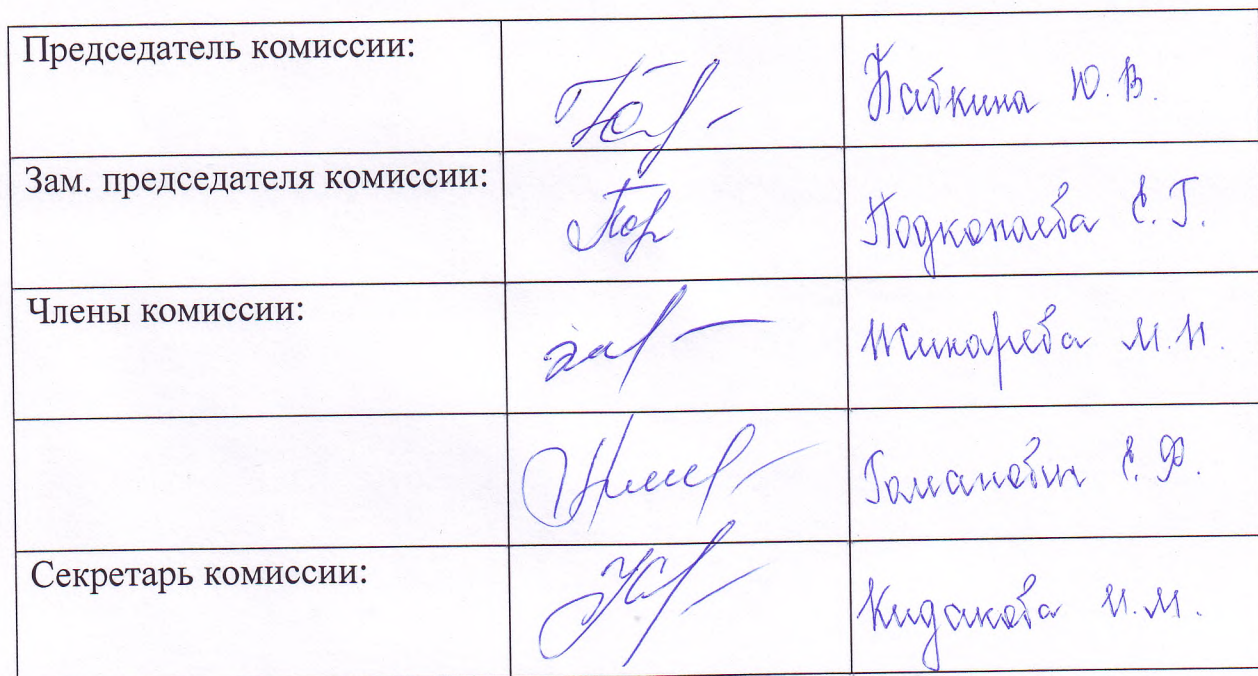 Председатель комиссии: Бабкина Ю. В.
Зам. председателя комиссии: Подкопаева Е. Г.
Члены комиссии: Жинарева М. И.
Е. Ф.
Секретарь комиссии: Кидакова И. М.